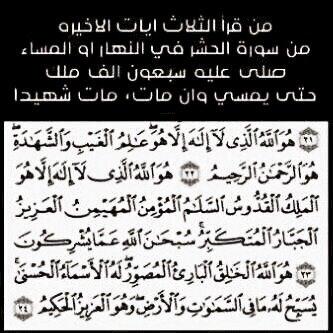 من قرأ الثلاث ايات الاخيره
من سورة الحشر في النهار او المساء
صلى عليه سبعون الف ملك
حتى يمسي وان مات، مات شهيدا
٢١ هُوَ ٱللَّهُ ٱلَّذِى لَآ إِلَٰهَ إِلَّا هُوَ عَٰلِمُ ٱلْغَيْبِ وَٱلشَّهَٰدَةِ
هُوَ ٱلرَّحْمَٰنُ ٱلرَّحِيمُ ٢٢ هُوَ ٱللَّهُ ٱلَّذِى لَآ إِلَٰهَ إِلَّا هُوَ
ٱلْمَلِكُ ٱلْقُدُّوسُ ٱلسَّلَٰمُ ٱلْمُؤْمِنُ ٱلْمُهَيْمِنُ ٱلْعَزِيزُ
ٱلْجَبَّارُ ٱلْمُتَكَبِّرُ سُبْحَٰنَ ٱللَّهِ عَمَّا يُشْرِكُونَ
٢٣ هُوَ ٱللَّهُ ٱلْخَٰلِقُ ٱلْبَارِئُ ٱلْمُصَوِّرُ لَهُ ٱلْأَسْمَآءُ ٱلْحُسْنَىٰ
يُسَبِّحُ لَهُۥ مَا فِى ٱلسَّمَٰوَٰتِ وَٱلْأَرْضِ وَهُوَ ٱلْعَزِيزُ ٱلْحَكِيمُ ٢٤